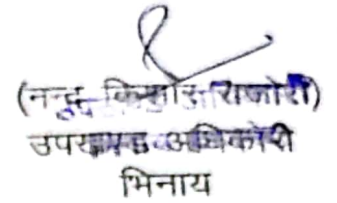 (नन्द किशोर राजोरी)
उपखण्ड अधिकारी
भिनाय